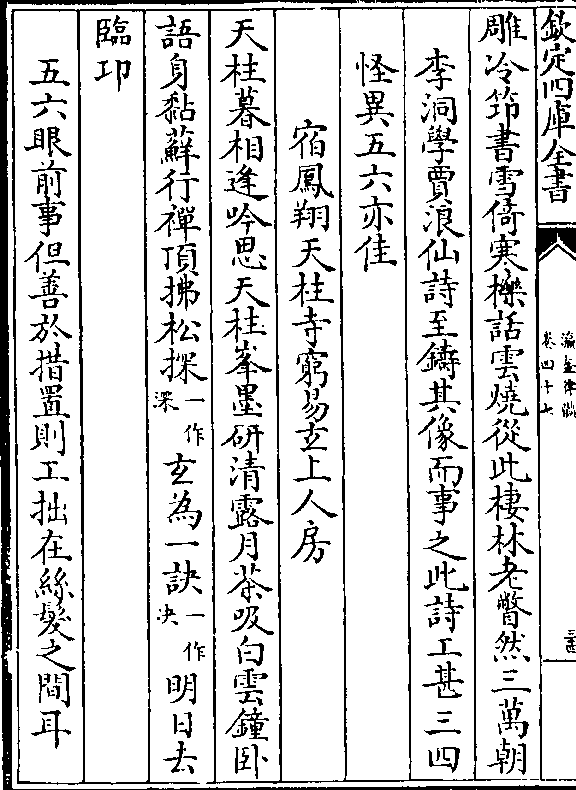 欽定四庫全書
瀛奎律髓
卷四十七
雕冷筇書雪倚寒櫟話雲燒從此棲林老瞥然三萬朝
李洞學賈浪仙詩至鑄其像而事之此詩工甚三四
怪異五六亦佳
宿鳳翔天柱寺窮易玄上人房
天柱暮相逢吟思天柱峯墨研清露月茶吸白雲鐘卧
語身黏蘚行禪頂拂松探一作深玄為一訣一作决明日去
臨邛
五六眼前事但善於措置則工拙在絲髮之間耳